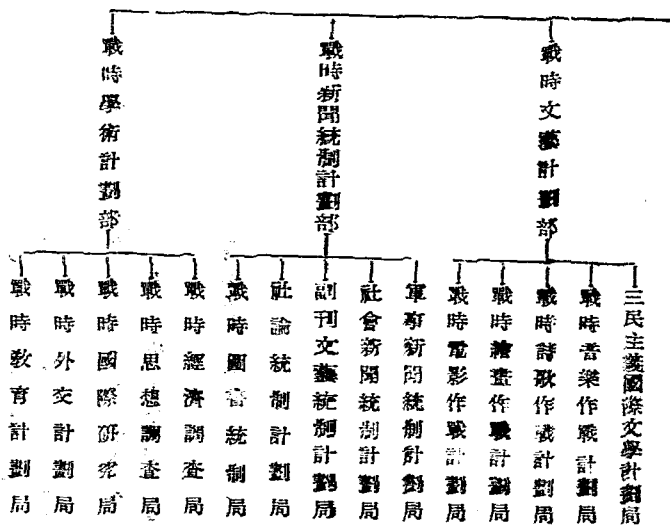 戰時文藝計劃部
戰時新聞統制計劃部
戰時學術計劃部
三民主義國際文學計劃局
戰時音樂作戰計劃局
戰時詩歌作戰計劃局
戰時繪畫作戰計劃局
戰時電影作戰計劃局
軍事新聞統制計劃局
社會新聞統制計劃局
副刊文藝統制計劃局
社論統制計劃局
戰時圖書統制局
戰時經濟調查局
戰時思想調查局
戰時國際研究局
戰時外交計劃局
戰時教育計劃局